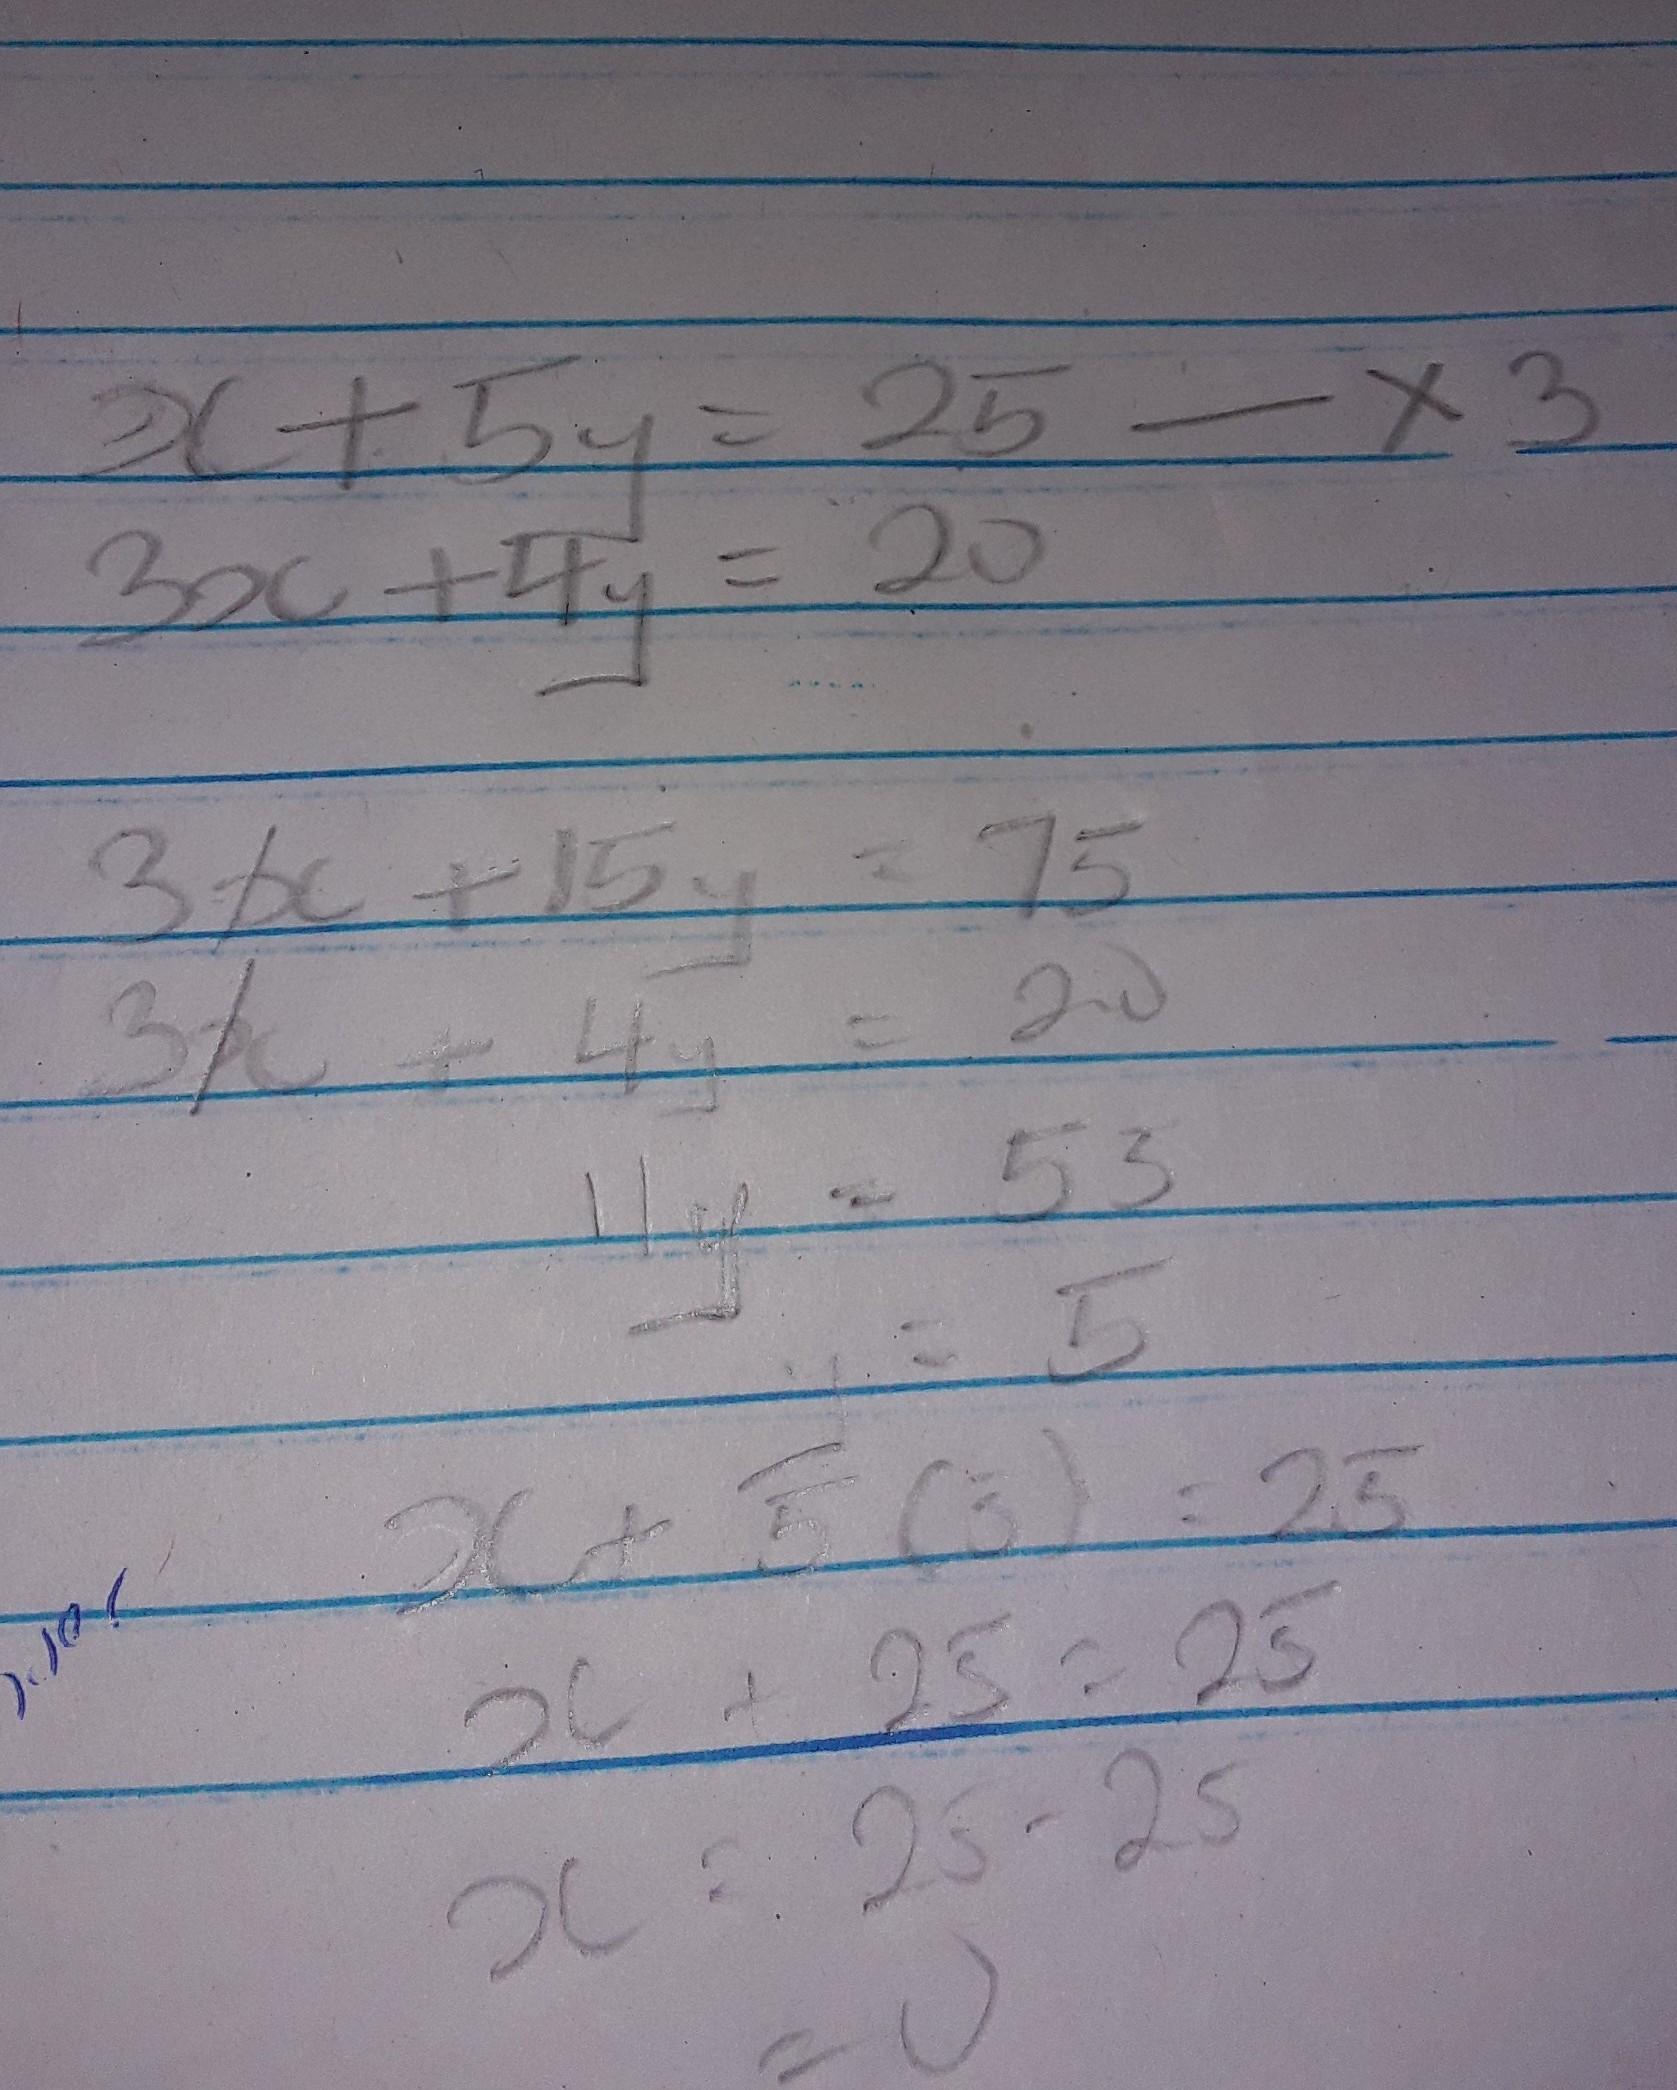 x + 5y = 25 — × 3
3x + 4y = 20
3x + 15y = 75
3x + 4y = 20
11y = 53
y = 5
x + 5 (5) = 25
x + 25 = 25
x = 25 - 25
= 0